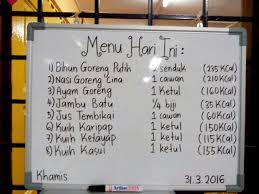 Menu Hari Ini :
1) Bihun Goreng Putih senduk (235 KCal)
2) Nasi Goreng Cina 1 cawan (210 KCal)
3) Ayam Goreng 1 ketul (160 KCal)
4) Jambu Batu 1/4 biji (35 KCal)
5) Jus Tembikai 1 cawan (60 KCal)
6) Kuih Karipap 1 ketul (150 KCal)
7) Kuih Ketayap 1 ketul (115 KCal)
8) Kuih Kasui 1 ketul (155 KCal)
Khamis 31.3.2016